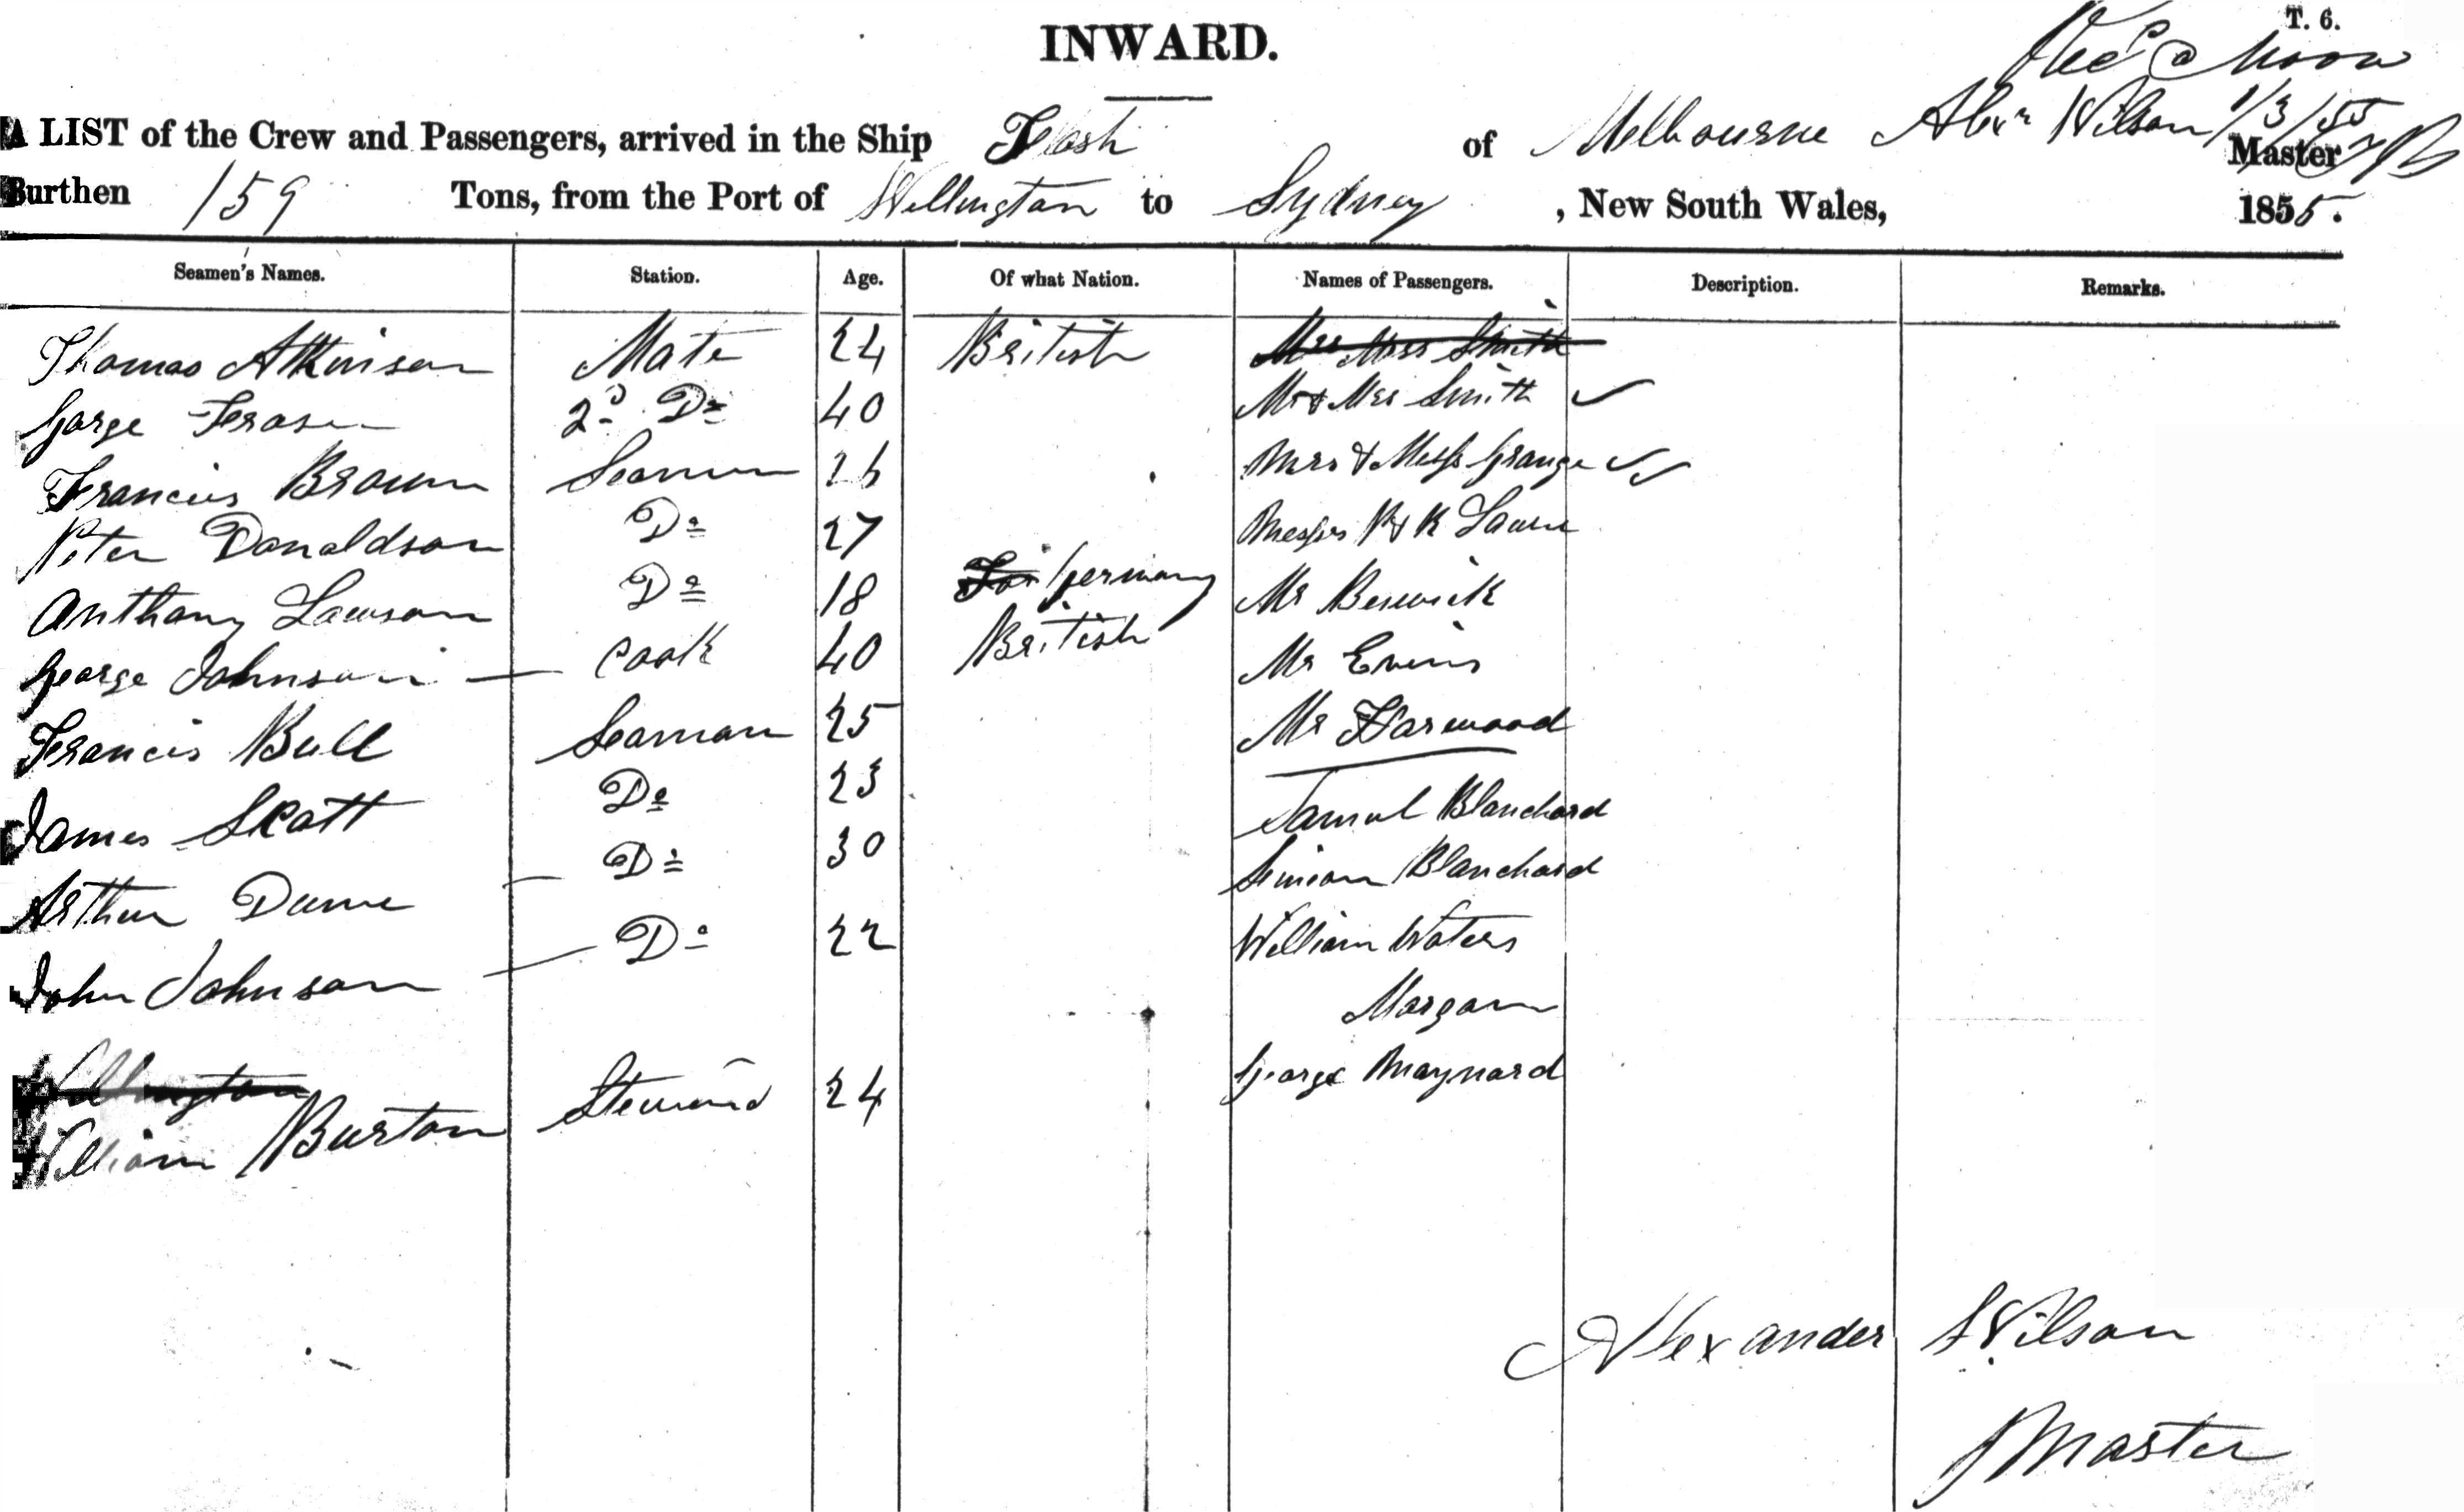 INWARD.
T. 6.
Rec'd @ Noon
1/3/55
A LIST of the Crew and Passengers, arrived in the Ship Flash of Melbourne Alexr Wilson Master
Burthen 159 Tons, from the Port of Wellington to Sydney , New South Wales, 1855.
Seamen's Names. Station. Age. Of what Nation. Names of Passengers. Description. Remarks.
Thomas Atkinson Mate 24 British Mrs Miss Smith
Gorge Fraser 2d Do 40 Mr & Mrs Smith ✓
Francius Brown Seaman 26 Mrs & Miss Grange ✓✓
Peter Donaldson Do 27 Messrs & R
Anthony Lawson Do 18 Germany Mr Berwick
George Johnson — Cook 40 British Mr Evins
Francis Bull Seaman 25 Mr Harwood
James Scott Do 23 Samul Blanchard
Arthur Dunne — Do 30 Simion Blanchard
John Johnson — Do 22 William Waters
Morgan
Wellington George Maynard
William Burton Steward 24
Alexander Wilson
Master